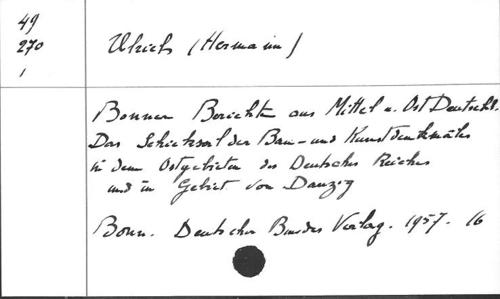 49
270
1
Ulrich (Hermann)
Bonner Berichte aus Mittel u. Ost Deutschl.
Das Schicksal der Bau- und Kunstdenkmäler
in dem Ostgebieten des Deutschen Reiches
und in Gebiet von Danzig
Bonn. Deutscher Bundes Verlag. 1957. 16